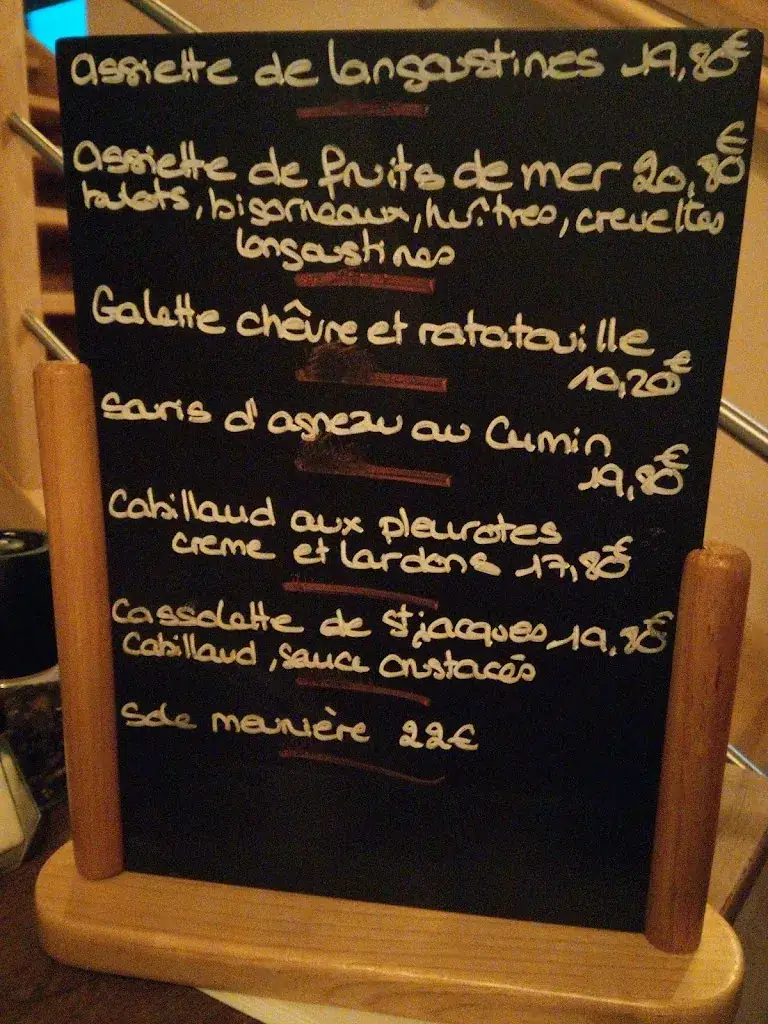 Assiette de langoustines 19,80€
Assiette de fruits de mer 20,80€
bulots, bigorneaux, huîtres, crevettes
langoustines
Galette chèvre et ratatouille
10,20€
Souris d'agneau au Cumin
19,80€
Cabillaud aux pleurotes
creme et lardons 17,80€
Cassolette de St jacques 19,80€
Cabillaud, sauce crustacés
Sole meunière 22€